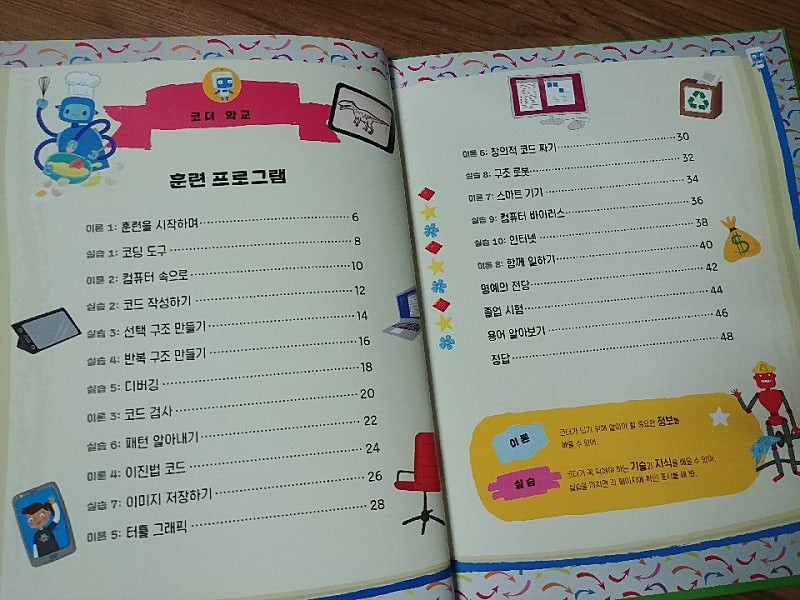 코더 학교
훈련 프로그램
이론 1: 훈련을 시작하며 6
실습 1: 코딩 도구 8
이론 2: 컴퓨터 속으로 10
실습 2: 코드 작성하기 12
실습 3: 선택 구조 만들기 14
실습 4: 반복 구조 만들기 16
실습 5: 디버깅 18
이론 3: 코드 검사 20
실습 6: 패턴 알아내기 22
이론 4: 이진법 코드 24
실습 7: 이미지 저장하기 26
이론 5: 터틀 그래픽 28
이론 6: 창의적 코드 짜기 30
실습 8: 구조 로봇 32
이론 7: 스마트 기기 34
실습 9: 컴퓨터 바이러스 36
실습 10: 인터넷 38
이론 8: 함께 일하기 40
명예의 전당 42
졸업 시험 44
용어 알아보기 46
정답 48
이론
코더가 되기 위해 알아야 할 중요한 정보를
배울 수 있어.
실습
코더가 꼭 익혀야 하는 기술과 지식을 배울 수 있어.
실습을 마치면 각 페이지에 확인 표시를 해 봐.